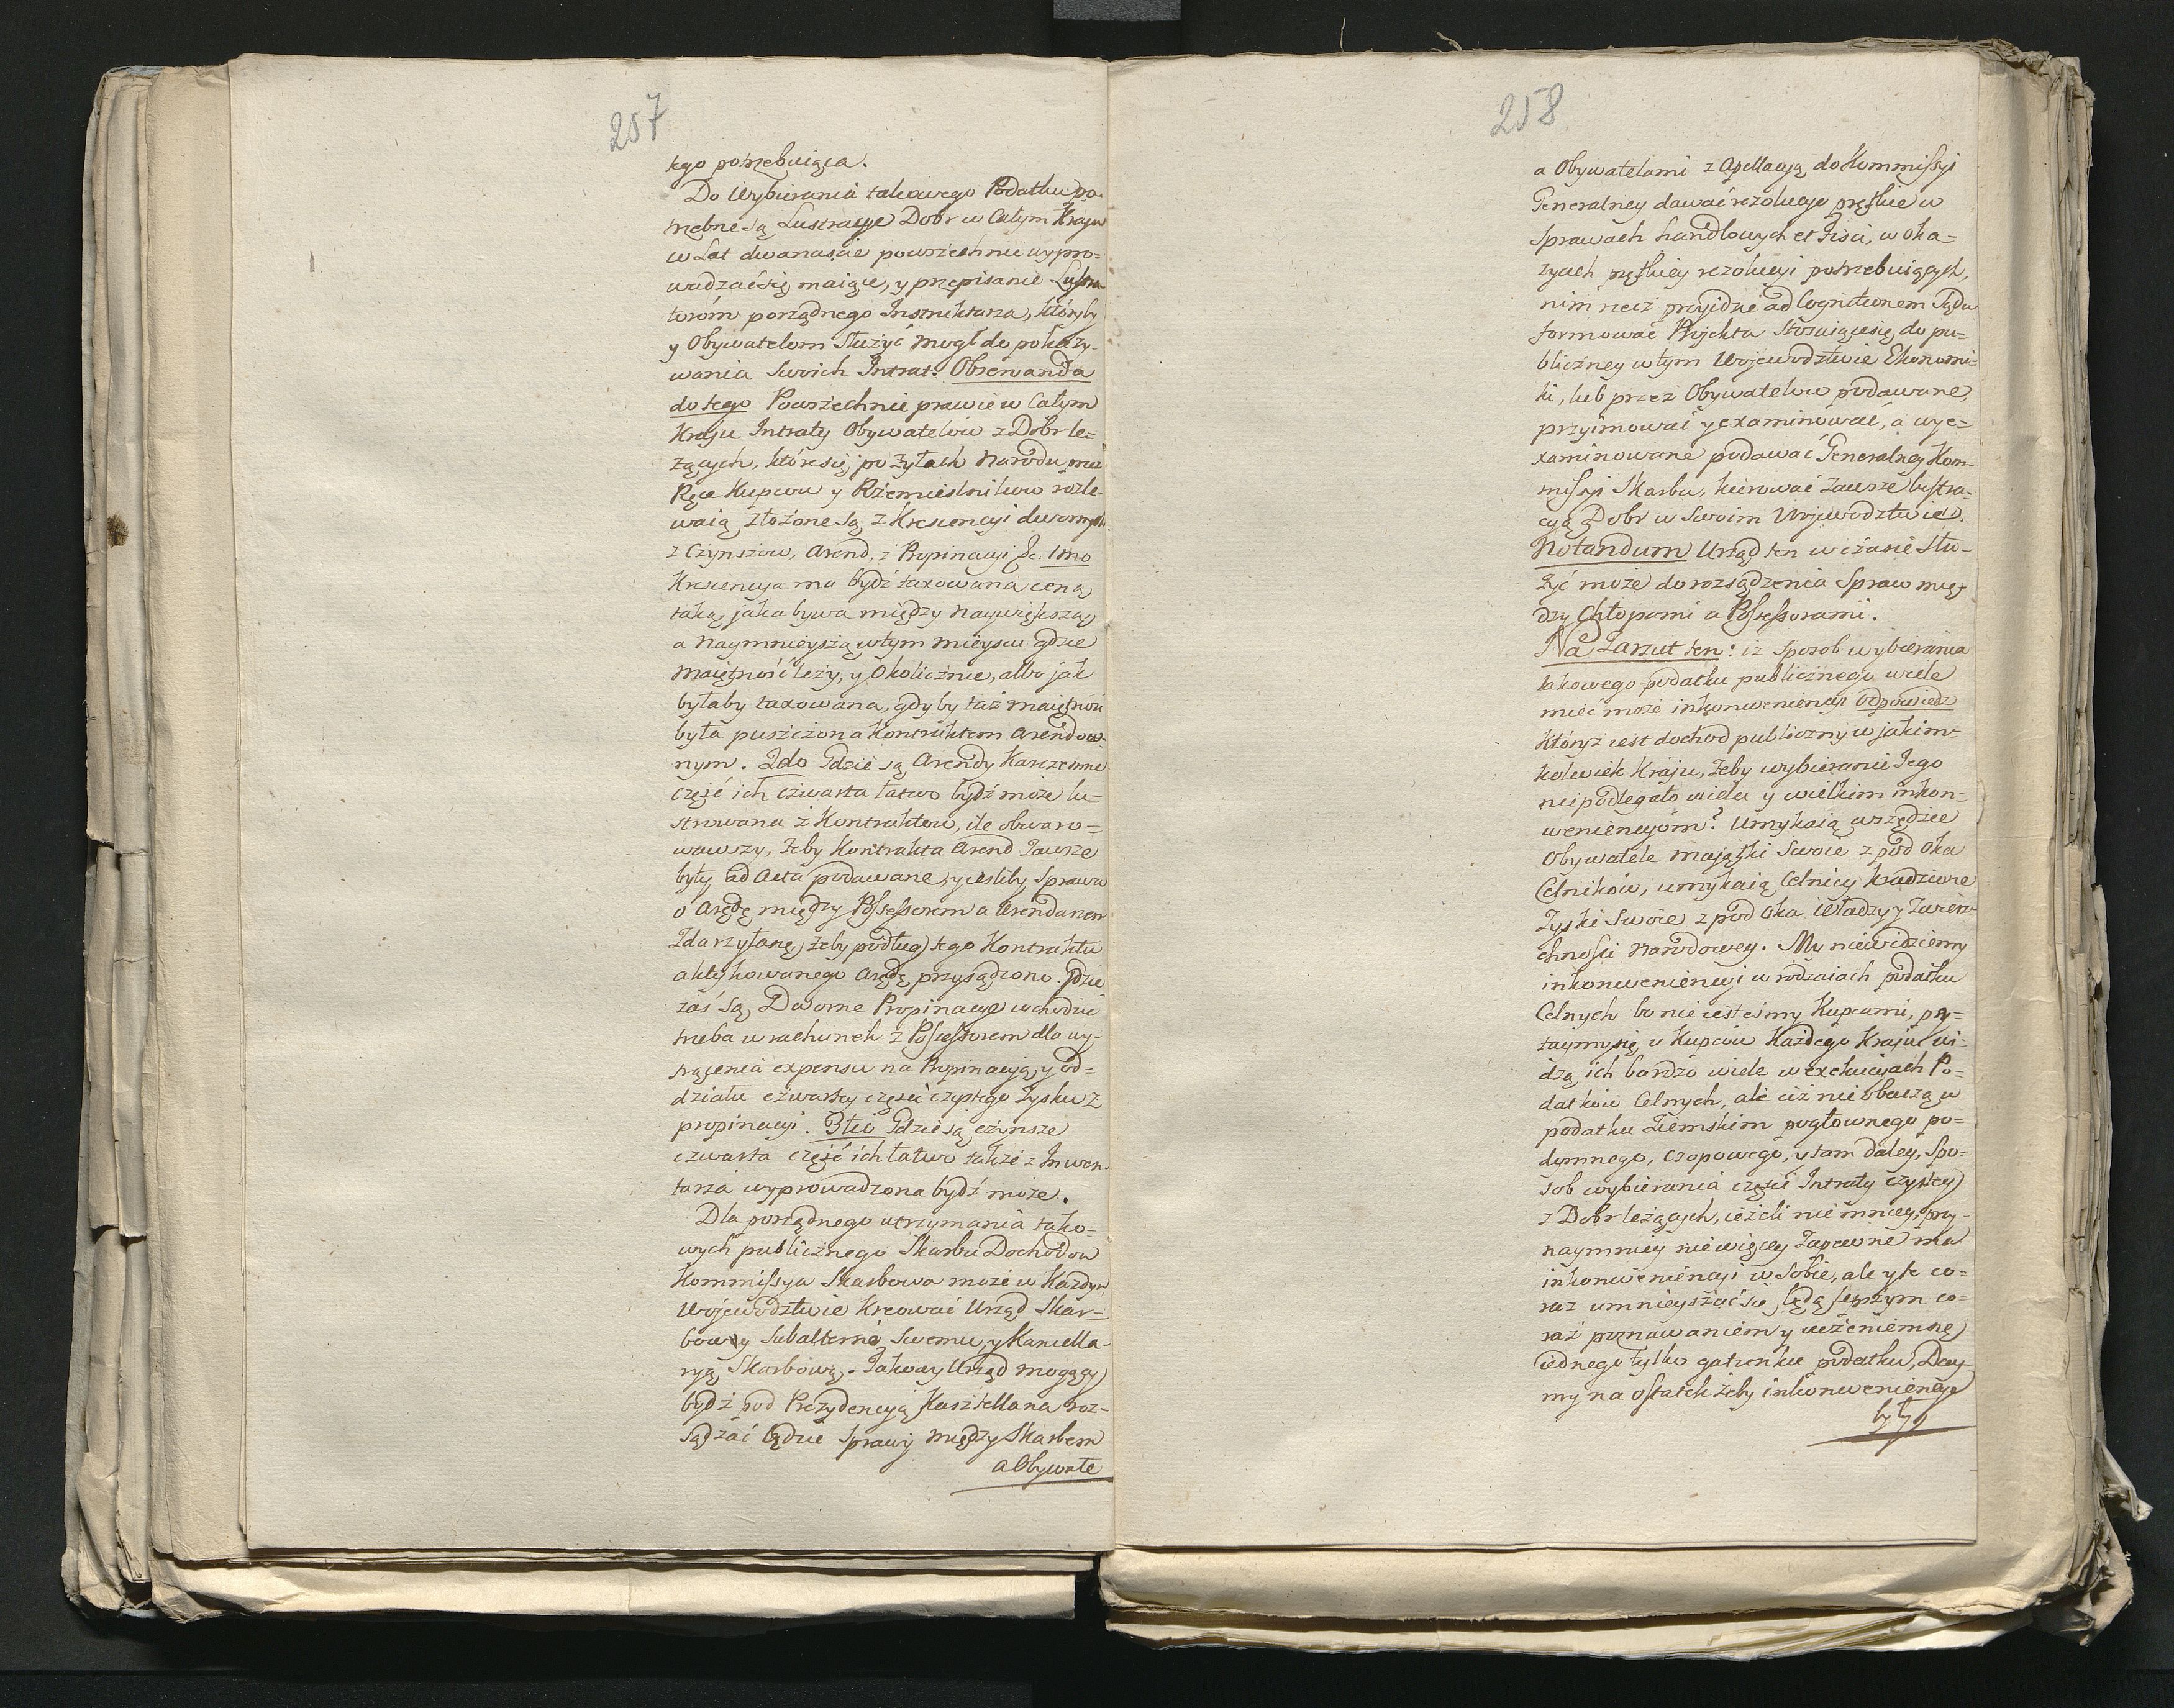 257
tego potrzebuiąca.
Do Wybierania takowego Podatku po-
trzebne są Lustracye Dobr w Całym Kraju
w Lat dwanaście powszechnie wypro=
wadzać się maiące, y przepisanie Lustra-
torom porządnego Instruktarza, któryby
y Obywatelom Służyć mogł do pokazy-
wania Swoich Intrat. Observanda
do tego Powszechnie prawie w Całym
Kraju Intraty Obywatelow z Dobr le=
żących, które się po Żyłach Narodu przez
Ręce Kupcow y Rzemieslnikow rozle-
waią złożone są z Krescencyi dwornych
z Czynszow, Arend, z Propinacyi &c. 1mo
Krescencya ma bydź taxowana ceną
taką, jaka bywa między Naywiększą
a Naymnieyszą w tym mieyscu gdzie
Maiętność leży, y Okolicznie, albo jak
byłaby taxowana, gdyby taż maiętność
była puszczona Kontraktem Arendow-
nym. 2do Gdzie są Arendy Karczemne
część ich czwarta łatwo bydź może lu=
strowana z Kontraktow, ile obwaro=
wawszy, Żeby Kontrakta Arend Zawsze
były ad Acta podawane, y iesliby Sprawa
o Arędę między Possessorem a Arendarzem
Zdarzyła się, żeby podług tego Kontraktu
aktykowanego Arędę przysądzono. Gdzie
zaś są Dworne Propinacye wchodzić
trzeba w rachunek z Possessorem dla wy-
trącenia expensu na Propinacyą, y od=
działu czwartey części czystego Zysku z
propinacyi. 3tio Gdzie są czynsze
czwarta część ich łatwo także z Inwen-
tarza wyprowadzona bydź może.
Dla porządnego utrzymania tako-
wych publicznego Skarbu Dochodow
Kommissya Skarbowa może w Każdym
Wojewodztwie Kreować Urząd Skar=
bowy Subalterne Swemu, y Kancella-
ryą Skarbową. Takowy Urząd mogący
bydź pod Prezydencyą Kasztellana roz-
sądzać będzie Sprawy między Skarbem
a Obywate
258
a Obywatelami z Apellacyą do Kommissyi
Generalney dawać rezolucye prętkie w
Sprawach handlowych et Fisci, w oka=
zyach prętkiey rezolucyi potrzebuiących,
nim rzecz przyidzie ad Cognitionem Sądu
formować Projekta Stosuiące się do pu-
bliczney w tym Wojewodztwie Ekonomi=
ki, lub przez Obywatelow podawane
przyimować y examinować, a wye=
xaminowane podawać Generalney Kom-
missyi Skarbu, kierować zawsze lustra-
cyą Dobr w Swoim Wojewodztwie.
Notandum Urząd ten w czasie Słu-
żyć może do rozsądzenia Spraw mię-
dzy Chłopami a Possessorami.
Na Zarzut ten: iż Sposob wybierania
takowego podatku publicznego wiele
mieć może inkonweniencyi Odpowiedź
Któryż iest dochod publiczny w jakim=
kolwiek Kraju, żeby wybieranie Jego
nie podlegało wielu y wielkim inkon-
weniencyom? Umykaią wszędzie
Obywatele Majątki Swoie z pod Oka
Celnikow, umykaią Celnicy Kradzione
Zyski Swoie z pod Oka Władzy y Zwierz-
chności Narodowey. My niewidziemy
inkonweniencyi w rodzaiach podatku
Celnych bo nie iesteśmy Kupcami, py=
taymy się u Kupcow Każdego Kraju wi-
dzą ich bardzo wiele w exekucyach Po=
datkow Celnych, ale iż nie obaczą w
podatku Ziemskim pogłownego po=
dymnego, czopowego, y tam daley, Spo-
sob wybierania części Intraty czystey
z Dobr leżących, ieżeli nie mniey, przy-
naymniey niewięcey Zapewne ma
inkonweniencyi w Sobie, ale y te co=
raz umnieyszać się będą lepszym co=
raz poznawaniem y
iednego tylko gatunku podatku, Day-
my na ostatek żeby inkonweniencye
były